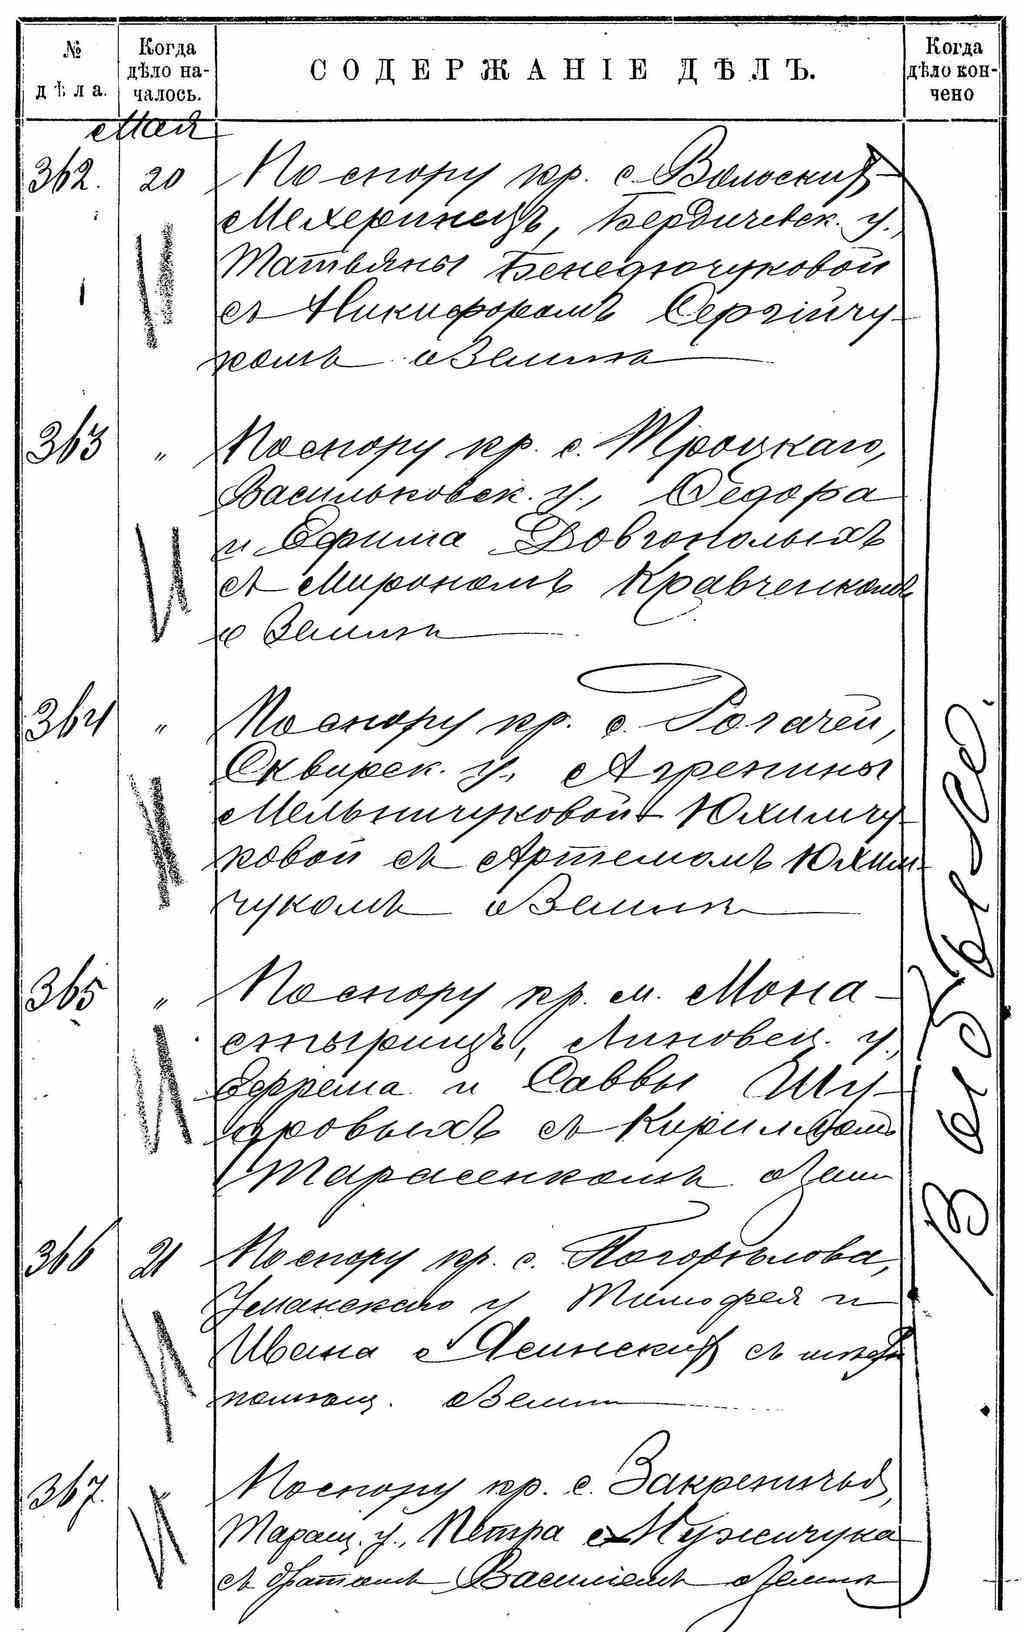 № дѣла.
Когда дѣло началось.
СОДЕРЖАНІЕ ДѢЛЪ.
Когда дѣло кончено
Мая
362. 20 По спору кр. с. Волоских
Мехеринецъ, Бердичевск. у.,
Татьяны Бенедючуковой
съ Никифоромъ Сергійчу-
комъ о земли
363 " По спору кр. с. Троцкаго,
Васильковск. у., Ѳедора
и Ефима Довгополыхъ
съ Мирономъ Кравченкомъ
о земли
364 " По спору кр. с. Рогачей,
Сквирск. у., Агрепины
Мельничуковой Юхимчу-
ковой съ Артемомъ Юхим-
чукомъ о земли
365 " По спору кр. м. Мона-
стырищъ, Липовец. у.,
Ефрема и Саввы Шу-
ровыхъ съ Кириломъ
Тарасенкомъ о земли
366 21 По спору кр. с. Погорѣлова,
Уманскаго у Тимофея и
Ивана Ясинских съ
о земли
367. " По спору кр. с. Закреничья,
Таращ. у., Петра Мужичука
съ братомъ Василіемъ о земли
Выбыло.